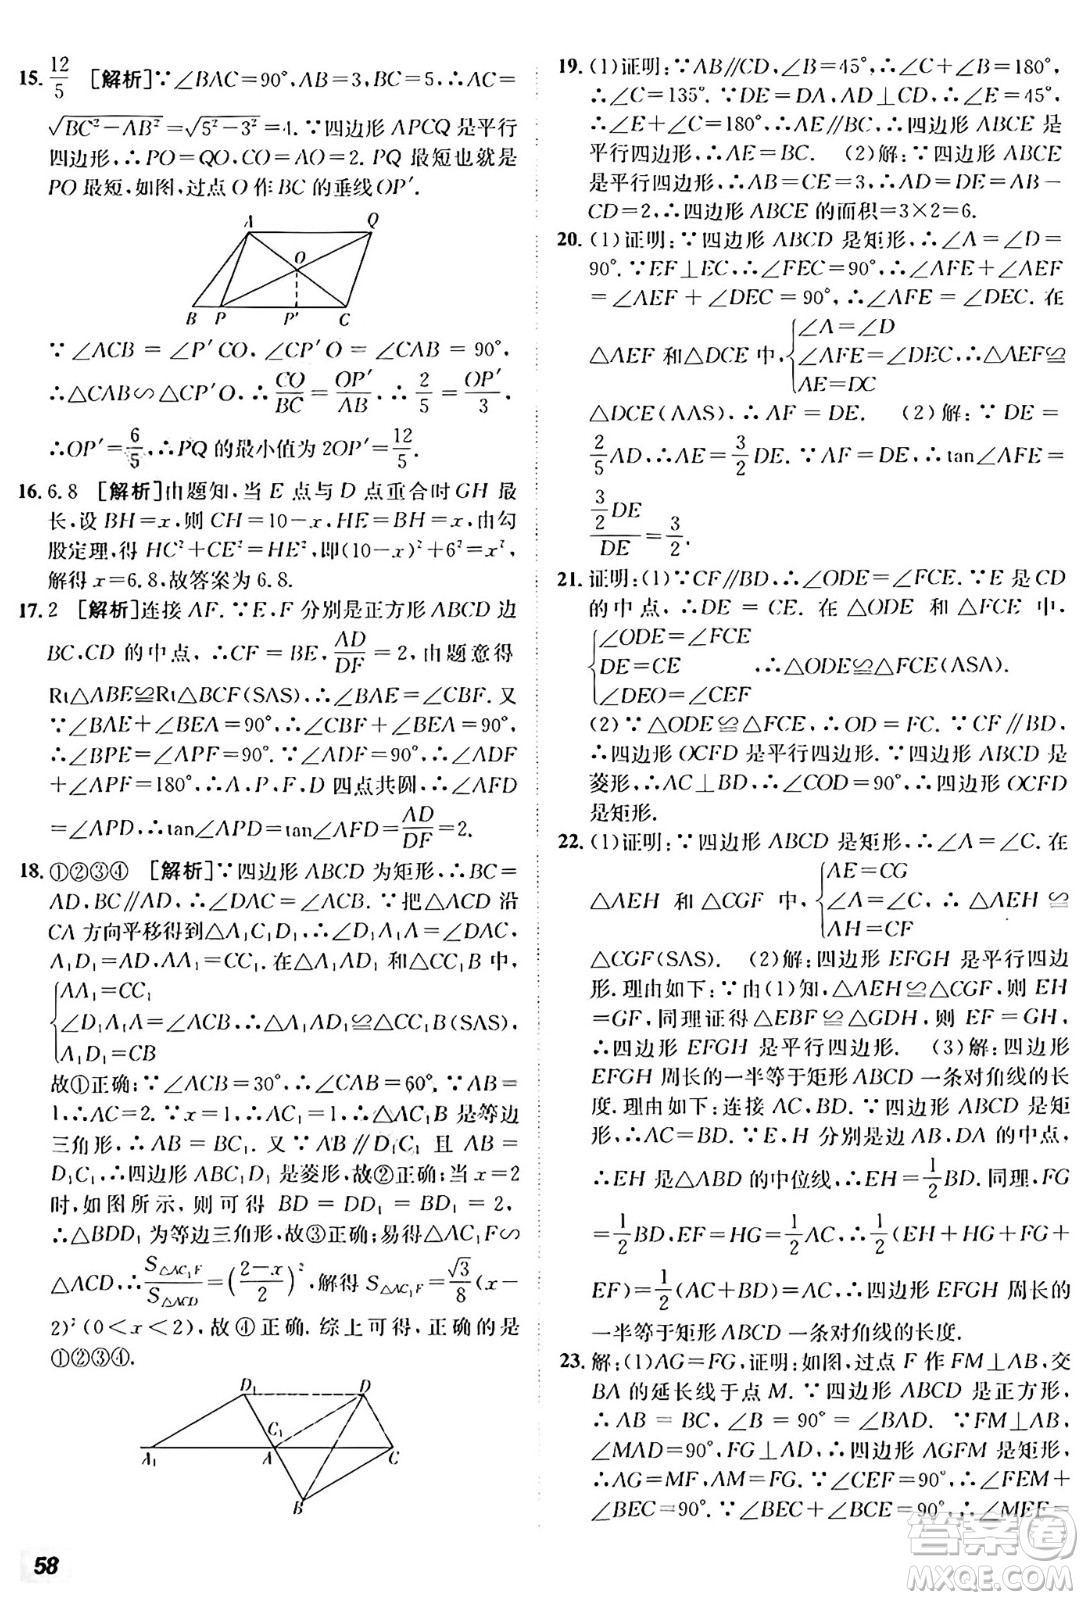 15. 12/5 [解析]∵∠BAC=90°,AB=3,BC=5,∴AC=
√(BC²-AB²)=√(5²-3²)=4.∵四边形 APCQ 是平行
四边形,∴PO=QO,CO=AO=2. PQ 最短也就是
PO 最短,如图,过点 O 作 BC 的垂线 OP′.
A Q
O
B P P′ C
∵∠ACB=∠P′CO,∠CP′O=∠CAB=90°,
∴△CAB∽△CP′O.∴CO/BC=OP′/AB,∴2/5=OP′/3,
∴OP′=6/5,∴PQ 的最小值为 2OP′=12/5.
16. 6.8 [解析]由题知,当 E 点与 D 点重合时 GH 最
长,设 BH=x,则 CH=10-x,HE=BH=x,由勾
股定理,得 HC²+CE²=HE²,即(10-x)²+6²=x²,
解得 x=6.8,故答案为 6.8.
17. 2 [解析]连接 AF.∵E,F 分别是正方形 ABCD 边
BC,CD 的中点,∴CF=BE,AD/DF=2,由题意得
Rt△ABE≌Rt△BCF(SAS),∴∠BAE=∠CBF.又
∵∠BAE+∠BEA=90°,∴∠CBF+∠BEA=90°,
∴∠BPE=∠APF=90°.∵∠ADF=90°,∴∠ADF
+∠APF=180°,∴A,P,F,D 四点共圆,∴∠AFD
=∠APD,∴tan∠APD=tan∠AFD=AD/DF=2.
18. ①②③④ [解析]∵四边形 ABCD 为矩形,∴BC=
AD,BC∥AD,∴∠DAC=∠ACB.∵把△ACD 沿
CA 方向平移得到△A₁C₁D₁,∴∠A₁=∠DAC,
A₁D₁=AD,AA₁=CC₁.在△A₁AD₁ 与△CC₁B 中,
{AA₁=CC₁
∠D₁A₁A=∠ACB,∴△A₁AD₁≌△CC₁B(SAS),
A₁D₁=CB
故①正确;∵∠ACB=30°,∴∠CAB=60°.∵AB=
1,∴AC=2.∵x=1,∴AC₁=1,∴△AC₁B 是等边
三角形,∴AB=BC₁.又∵AB∥D₁C₁且AB=
D₁C₁,∴四边形 ABC₁D₁是菱形,故②正确;当 x=2
时,如图所示,则可得 BD=DD₁=BD₁=2,
∴△BDD₁为等边三角形,故③正确;∵△AC₁F∽
△ACD,∴S△AC₁F/S△ACD=((2-x)/2)²,解得 S△AC₁F=√3/8(x-
2)²(0<x<2),故④正确.综上可得,正确的是
①②③④.
D₁ D
C₁
A₁ A C
B
58
19. (1)证明:∵AB∥CD,∠B=45°,∴∠C+∠B=180°,
∴∠C=135°.∵DE=DA,AD⊥CD,∴∠E=45°,
∴∠E+∠C=180°,∴AE∥BC.∴四边形 ABCE 是
平行四边形,∴AE=BC. (2)解:∵四边形 ABCE
是平行四边形,∴AB=CE=3,∴AD=DE=AB-
CD=2,∴四边形 ABCE 的面积=3×2=6.
20. (1)证明:∵四边形 ABCD 是矩形,∴∠A=∠D=
90°.∵EF⊥EC,∴∠FEC=90°,∴∠AFE+∠AEF
=∠AEF+∠DEC=90°,∴∠AFE=∠DEC.在
△AEF 和△DCE 中,{∠A=∠D
∠AFE=∠DEC,∴△AEF≌
AE=DC
△DCE(AAS),∴AF=DE. (2)解:∵DE=
2/5AD,∴AE=3/2DE,∴AE=DC=3/2DE,∴tan∠AFE=
(3/2DE)/DE=3/2.
21. 证明:(1)∵CF∥BD,∴∠ODE=∠FCE.∵E 是 CD
的中点,∴DE=CE.在△ODE 和△FCE 中,
{∠ODE=∠FCE
DE=CE ∴△ODE≌△FCE(ASA).
∠DEO=∠CEF
(2)∵△ODE≌△FCE,∴OD=FC.∵CF∥BD,
∴四边形 OCFD 是平行四边形.∵四边形 ABCD 是
菱形,∴AC⊥BD,∴∠COD=90°,∴四边形 OCFD
是矩形.
22. (1)证明:∵四边形 ABCD 是矩形,∴∠A=∠C.在
△AEH 和△CGF 中,{AE=CG
∠A=∠C,∴△AEH≌
AH=CF
△CGF(SAS). (2)解:四边形 EFGH 是平行四边
形.理由如下:∵由(1)知,△AEH≌△CGF,则 EH
=GF,同理证得△EBF≌△GDH,则 EF=GH,
∴四边形 EFGH 是平行四边形. (3)解:四边形
EFGH 周长的一半等于矩形 ABCD 一条对角线的长
度.理由如下:连接 AC,BD,∵四边形 ABCD 是矩
形,∴AC=BD.∵E,H 分别是边 AB,DA 的中点,
∴EH 是△ABD 的中位线,∴EH=1/2BD.同理,FG
=1/2BD,EF=HG=1/2AC,∴1/2(EH+HG+FG+
EF)=1/2(AC+BD)=AC,∴四边形 EFGH 周长的
一半等于矩形 ABCD 一条对角线的长度.
23. 解:(1)AG=FG,证明:如图,过点 F 作 FM⊥AB,交
BA 的延长线于点 M.∵四边形 ABCD 是正方形,
∴AB=BC,∠B=90°=∠BAD.∵FM⊥AB,
∠MAD=90°,FG⊥AD,∴四边形 AGFM 是矩形,
∴AG=MF,AM=FG.∵∠CEF=90°,∴∠FEM+
∠BEC=90°.∵∠BEC+∠BCE=90°,∴∠MEF=
答案圈
MXQE.COM